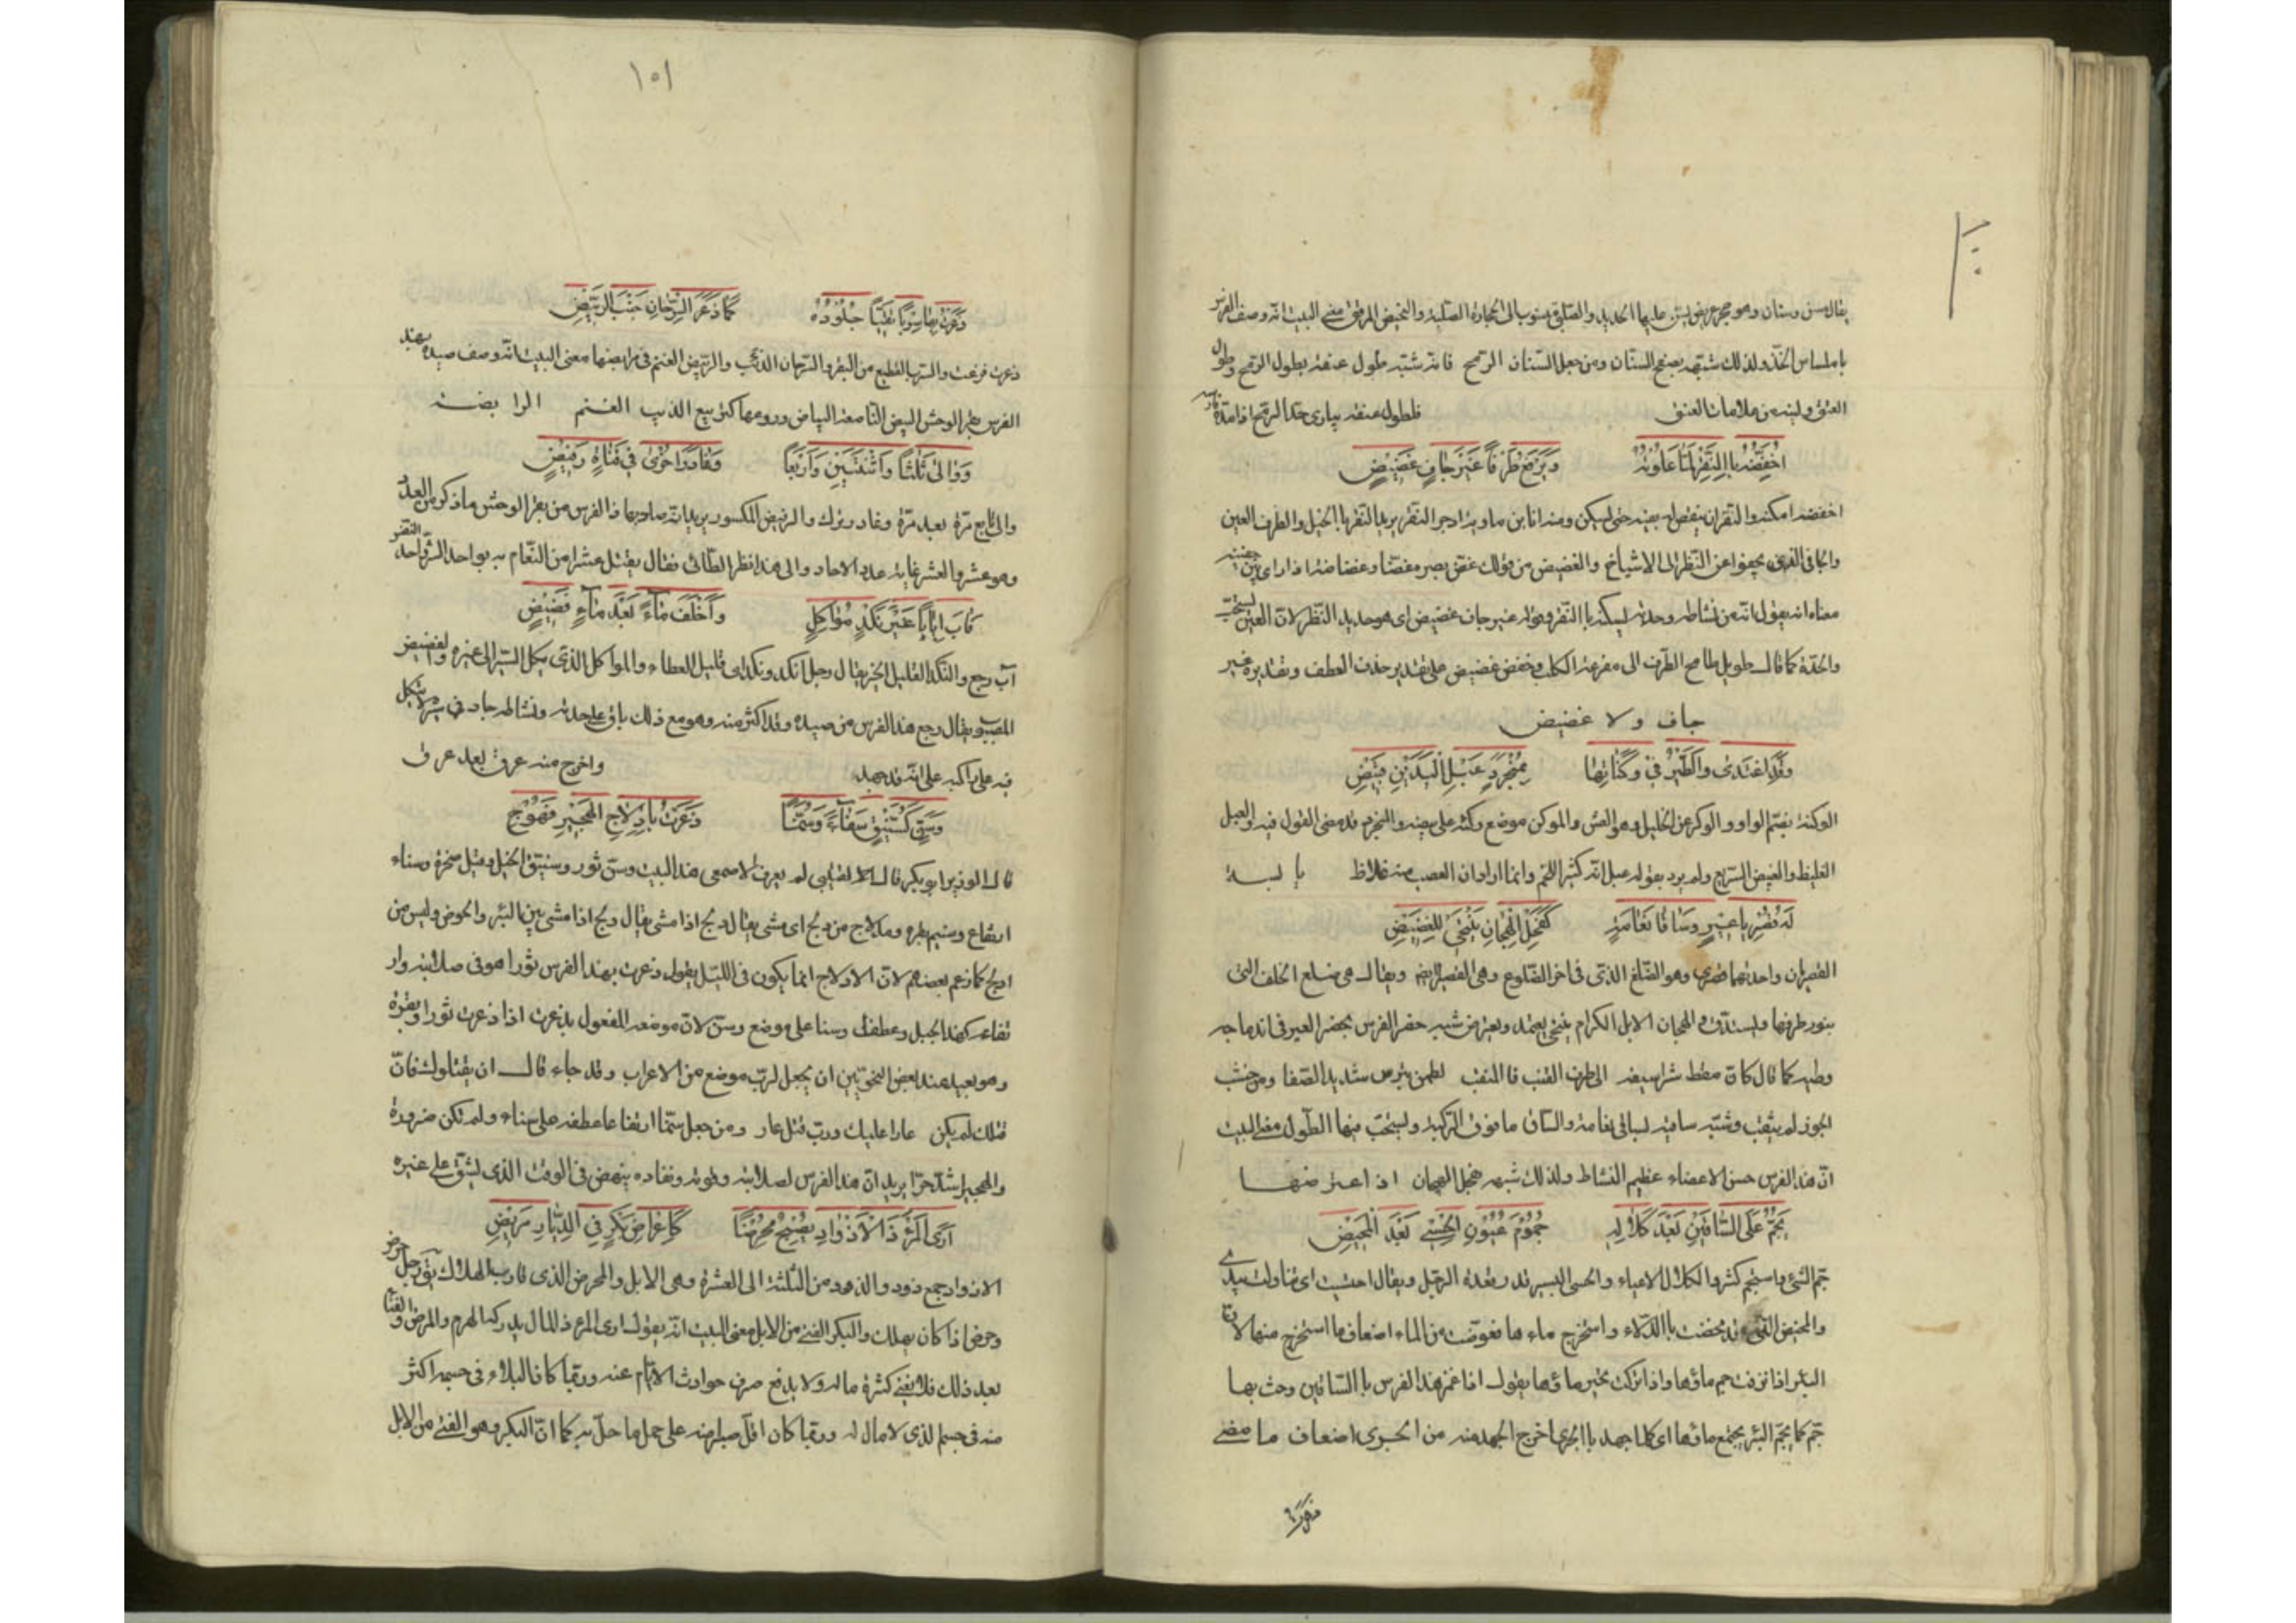 يقال سن وسنان وهو حجر عريض يسن عليها الحديد والصلبي منسوب الى الحجارة الصلبة والنحيض المرقق معنى البيت انه وصف الفرس
باملساس الخد ولذلك شبهه بصفح السنان ومن جعل السنان الرمح فانه شبه طول عنقه بطول الرمح وطول
العنق ولينه من علامات العتق فلطول عنقه يبارى حد الرمح اذا مده فارسه
اُخَفِّضُهُ بِاالنَّقْرِ لَمَّا عَلَوْتُهُ وَيَرْفَعُ طَرْفًا غَيْرَ جَافٍ غَضِيضِ
اخفضه اسكنه والنقر ان ينقص له بفيه حتى يسكن ومنه انا ابن ماوية اذ جد النقر يريد النقر باالخيل والطرف العين
والجافى الذى يجفوا عن النظر الى الاشياخ والغضيض من قولك غض بصره غضا وغضاضة اذا دانى بين جفنيه
معناه انه يقول انه من نشاطه وحدته ليسكنه باالنقر وقوله غير جاف غضيض اى هو حديد النظر لان العين تستحب
واحدة كما قال طويل طامح الطرف الى مفزعة الكلب وخفض غضيض على تقدير حذف العطف وتقديره غير
جاف ولا غضيض
وَقَدْ اَغْتَدى وَالطَّيْرُ فى وُكُنَاتِهَا بِمُنْجَرِدٍ عَبْلِ الْيَدَيْنِ قَبِيضِ
الوكنة بضم الواو والوكر عن الخليل وهو العش والموكن موضع وكنه على بيضه والمنجرد قد مضى القول فيه والعبل
الغليظ والقبيض السريع ولم يرد بقوله عبل انه كثير اللحم وانما اراد ان العصب منه غلاظ يابسة
لَهُ قُصْرَيا عَيْرٍ وَسَاقَا نَعَامَةٍ كَفَحْلِ الْهِجَانِ يَنْتَحى لِلْغَضِيضِ
القصريان واحدتهما قصرى وهو الضلع الذى فى اخر الضلوع وهى القصيرى ايضا ويقال هى ضلع الخلف التى
وطيه كما قال كان مقط شراسيفه الى طرف القنب فاالمنقب لطمن بترس شديد الصفا ق من خشب
الجوز لم يثقب وشبه ساقيه بساقى نعامة والساق ما فوق الركبة ويستحب منها الطول معنى البيت
ان هذا الفرس حسن الاعضاء عظيم النشاط ولذلك شبهه بفحل الهجان اذا اعترضها
يَجِمُّ عَلَى السَّاقَيْنِ بَعْدَ كَلَالِهِ جُمُومَ عُيُونِ الْحِسْىِ بَعْدَ الْمَخِيضِ
جم الشئ واستجم كثر والكلال الاعياء والحسى البئر قد قعدة الرجل ويقال احتسيت اى تناولت بيدى
والمخيض التى قد مخضت باالدلاء واستخرج ماءها فعوضت من الماء اضعاف ما استخرج منها لان
البئر اذا نزفت جم ماؤها واذا تركت تخثر ماؤها يقول اذا غمز هذا الفرس باالساقين وحث بها
جم كما يجم البئر يجتمع ماؤها اى كلما جهد باالجرى اخرج الجهد منه من الجرى اضعاف ما مضى
١٥١
ذَعَرْتُ بِهَا سِرْبًا نَقِيًّا جُلُودُهُ كَمَا ذَعَرَ السِّرْحَانُ جَنْبَ الرَّبِيضِ
ذعرت فزعت والسرب القطيع من البقر والسرحان الذئب والربيض الغنم فى مرابضها معنى البيت انه وصف صيده بهذ
الفرس بقر الوحش البيض الناصعة البياض الذيب الغنم الرابضة
وَوَالى ثَلثًا وَاثْنَتَيْنِ وَاَرْبَعًا وَغَادَرَ اُخْرى فى قَنَاةٍ رَفِيضِ
والى تابع مرة بعد مرة وغادر ترك والرفيض المكسور يريد انه صاد بهذا الفرس من بقر الوحش ما ذكر من العدد
وهو عشر والعشر غاية عدد الاحاد والى هذا نظر الطائى فقال يقتل عشرا من النعام به بواحد الشد واحد النفس
فَآبَ اِيَابًا غَيْرَ نَكْدٍ مُوَاكِلٍ وَاَخْلَفَ مَآءً بَعْدَ مَآءٍ فَضِيضِ
آب رجع والنكد القليل الخير يقال رجل انكد ونكد اى قليل العطاء والمواكل الذى يكل السير الى غيره والفضيض
المصبوب يقال رجع هذا الفرس من صيده وقد اكثر منه وهو مع ذلك باق على حدته ونشاطه جاد فى سيره لا يتكل
فيه على راكبه على انه قد جهد واخرج منه عرق بعد عرق
وَسِنٍّ كَسُنَّيْقٍ سَنَآءً وَسُنَّمًا ذَعَرْتُ بِادْلَاجِ الْهَجِيرِ نَهُوضِ
قال الوزير ابو بكر قال لم يعرف الاصمعى هذا البيت وسن ثور وسنيق الخيل وقيل صخرة وسناء
ارتفاع وسنم بقرة ومدلاج من دلج اى مشى يقال دلج اذا مشى يقال دلج اذا مشى بين البئر والحوض وليس من
ادلج كما زعم بعضهم لان الادلاج انما يكون فى الليل يقول ذعرت بهذا الفرس ثورا هو فى صلابته وار
تفاعه كهذا الجبل وعطف وسنما على موضع وسن لان موضعه المفعول بذعرت اذا ذعرت ثورا وبقرة
وهو بعيد عند بعض النحويين ان يجعل لرب موضع من الاعراب وقد جاء قال ان يقتلوك فان
قتلك لم يكن عارا عليك ورب قتل عار ومن جعل سنما ارتفاعا عطفه على سناء ولم تكن ضرورة
والهجير اشد حرا يريد ان هذا الفرس لصلابته وقوته ونفاده ينهض فى الوقت الذى يشق على غيره
اَرَى الْمَرْءَ ذَا الْاَذْوَادِ يُصْبِحُ مُحْرَضًا كَاِحْرَاضِ بَكْرٍ فى الدِّيَارِ مَرِيضِ
الاذواد جمع ذود والذود من الثلثة الى العشرة وهى الابل والمحرض الذى قارب الهلاك يق رجل حرض
وحرض اذا كان يهلك والبكر الفتى من الابل معنى البيت انه يقول ارى المرء ذا المال يدركه الهرم والمرض والفنا
بعد ذلك فلا يغنى كثرة ماله ولا يدفع صرف حوادث الايام عنه وربما كان البلاء فى جسمه اكثر
منه فى جسم الذى لا مال له وربما كان اقل صبرا منه على حمل ما حل به كما ان البكر وهو الفتى من الابل